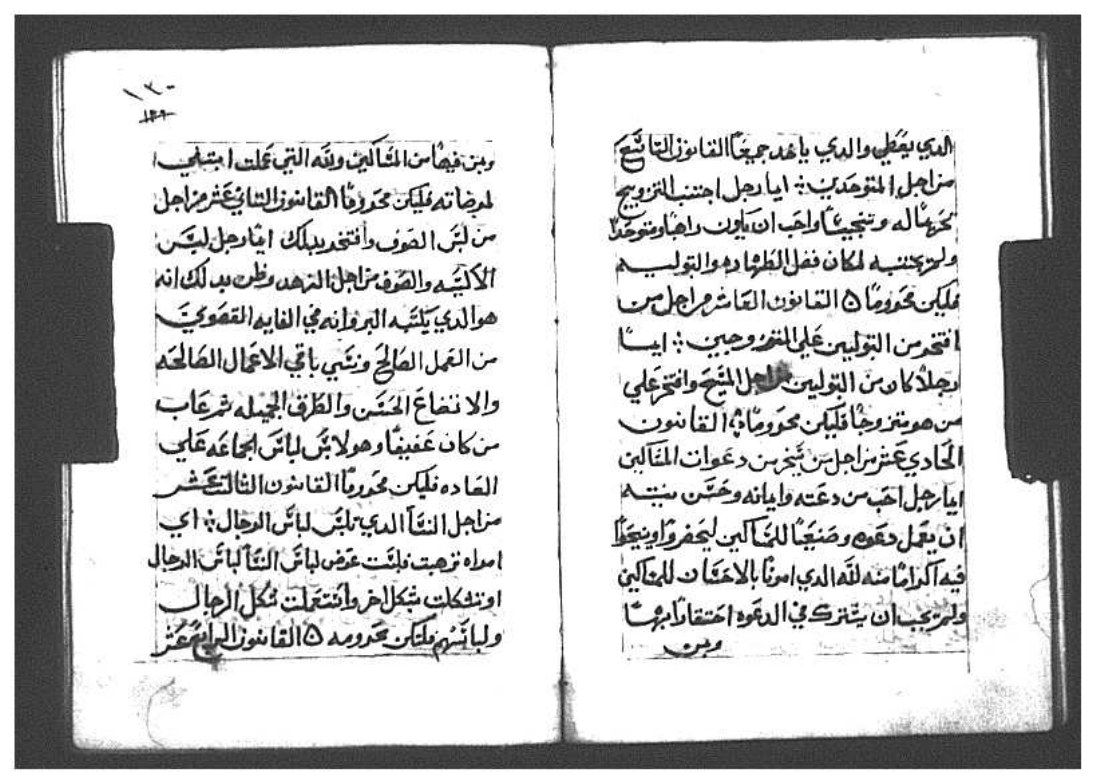 الدي يعطي والدي ياخد جميعًا القانون التاسع
من اجل المتوحدين ؞ ايما رجل اجتنب التزويج
تحريمًا له وتنجيسًا واحب ان يكون راهبًا ومتوحدًا
ولم يجتنبه لمكان فضل الطهاره والتوليه
فليكن محرومًا ۵ القانون العاشر من اجل من
افتخر من التوليين علي المتزوجين ؞ ايما
رجلاً كان من التوليين من اجل المسيح وافتخر علي
من هو متزوجًا فليكن محرومًا ؞ القانون
الحادي عشر من اجل من يسخر من دعوات المساكين
ايما رجل احب من دعته وايمانه وحسن نيته
ان يعمل دعوه وصنيعًا للمساكين ليحضروا ويتيحوا
فيه اكرامًا منه لله الدي امرنا بالاحسان للمساكين
ولم يجب ان يشترك في الدعوه احتقارًا بها
وبمن
١٣٠
١٢٩
وبمن فيها من المساكين ولله التي عملت ابتغي
لمرضاته فليكن محرومًا القانون التاني عشر من اجل
من لبس الصوف وافتخر بدلك ايما رجل لبس
الاكسيه والصوف من اجل الزهد وظن بدلك انه
هو الدي يكتسبه البر وانه في الغايه القصوي
من العمل الصالح ونسي باقي الاعمال الصالحه
والاتضاع الحسن والطرق الجميله ثم عاب
من كان عفيفًا وهو لابس لباس الجماعه علي
العاده فليكن محرومًا القانون التالت عشر
من اجل النسا الدي تلبس لباس الرجال ؞ اي
امراه ترهبت فلبست عوض لباس النسا لباس الرجال
او تشكلت بشكل اخر واستعملت شكل الرجال
ولباسهم فلتكن محرومه ۵ القانون الرابع عشر